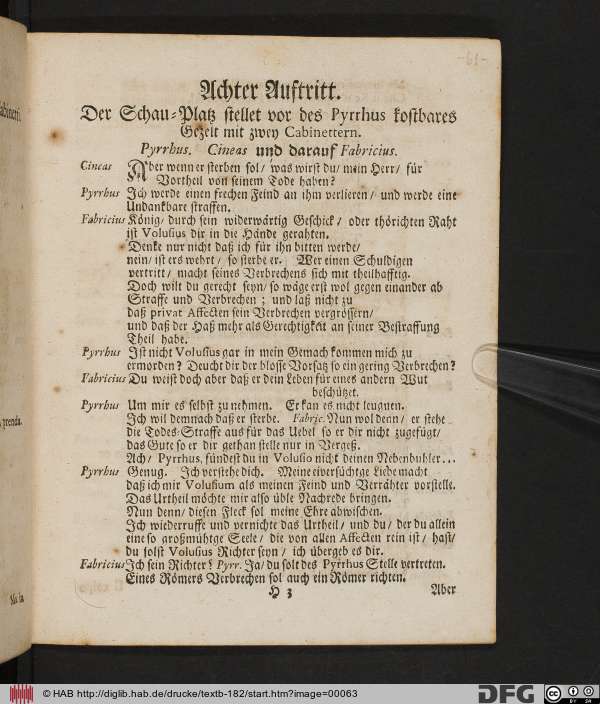 -61-
Achter Auftritt.
Der Schau-Platz stellet vor des Pyrrhus kostbares
Gezelt mit zwey Cabinettern.
Pyrrhus. Cineas und darauf Fabricius.
Cineas Aber wenn er sterben sol/ was wirst du/ mein Herr/ für
Vortheil von seinem Tode haben?
Pyrrhus Ich werde einen frechen Feind an ihm verlieren/ und werde eine
Undanckbare straffen.
Fabricius König/ durch sein widerwärtig Geschick/ oder thörichten Raht
ist Volusius dir in die Hände gerahten.
Dencke nur nicht daß ich für ihn bitten werde/
nein/ ist ers wehrt/ so sterbe er. Wer einen Schuldigen
vertritt/ macht seines Verbrechens sich mit theilhafftig.
Doch wilt du gerecht seyn/ so wäge erst wol gegen einander ab
Straffe und Verbrechen; und laß nicht zu
daß privat Affecten sein Verbrechen vergrössern/
und daß der Haß mehr als Gerechtigkeit an seiner Bestraffung
Theil habe.
Pyrrhus Ist nicht Volusius gar in mein Gemach kommen mich zu
ermorden? Deucht dir der blosse Vorsatz so ein gering Verbrechen?
Fabricius Du weist doch aber daß er dein Leben für eines andern Wut
beschützet.
Pyrrhus Um mir es selbst zu nehmen. Er kan es nicht leugnen.
Ich wil demnach daß er sterbe. Fabric. Nun wol denn/ er stehe
die Todes-Straffe aus für das Uebel so er dir nicht zugefügt/
das Gute so er dir gethan stelle nur in Vergeß.
Ach/ Pyrrhus, fündest du in Volusio nicht deinen Nebenbuhler...
Pyrrhus Genug. Ich verstehe dich. Meine eiversüchtge Liebe macht
daß ich mir Volusium als meinen Feind und Verrähter vorstelle.
Das Urtheil möchte mir also üble Nachrede bringen.
Nun denn/ diesen Fleck sol meine Ehre abwischen.
Ich wiederruffe und vernichte das Urtheil/ und du/ der du allein
eine so großmühtge Seele/ die von allen Affecten rein ist/ hast/
du solst Volusius Richter seyn/ ich übergeb es dir.
Fabricius Ich sein Richter? Pyrr. Ja/ du solt des Pyrrhus Stelle vertreten.
Eines Römers Verbrechen sol auch ein Römer richten.
H 3 Aber
© HAB http://diglib.hab.de/drucke/textb-182/start.htm?image=00063
DFG
cc BY SA